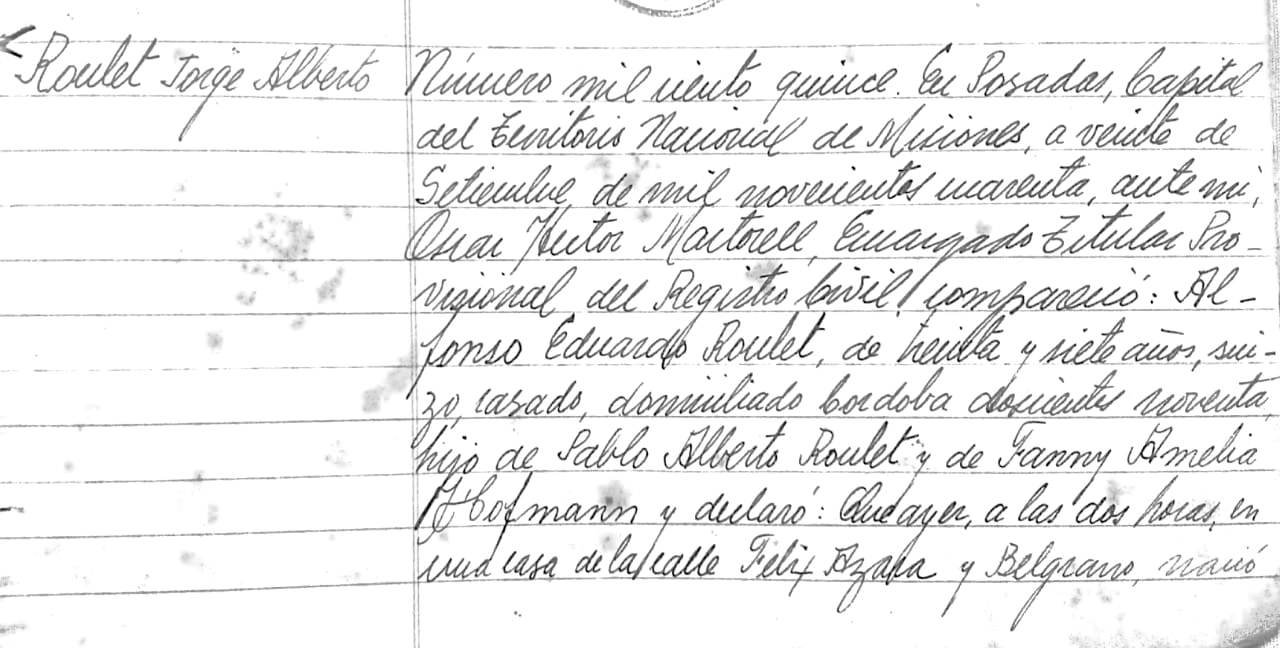 Roulet Jorge Alberto
Número mil ciento quince. En Posadas, Capital
del Territorio Nacional de Misiones, a veinte de
Setiembre de mil novecientos cuarenta, ante mi,
Oscar Hector Martorell, Encargado Titular Pro-
visional del Registro Civil, compareció: Al-
fonso Eduardo Roulet, de treinta y siete años, sui-
zo, casado, domiciliado Cordoba doscientos noventa,
hijo de Pablo Alberto Roulet y de Fanny Amelia
Hofmann y declaró: Que ayer, a las dos horas, en
una casa de la calle Felix Azara y Belgrano, nació